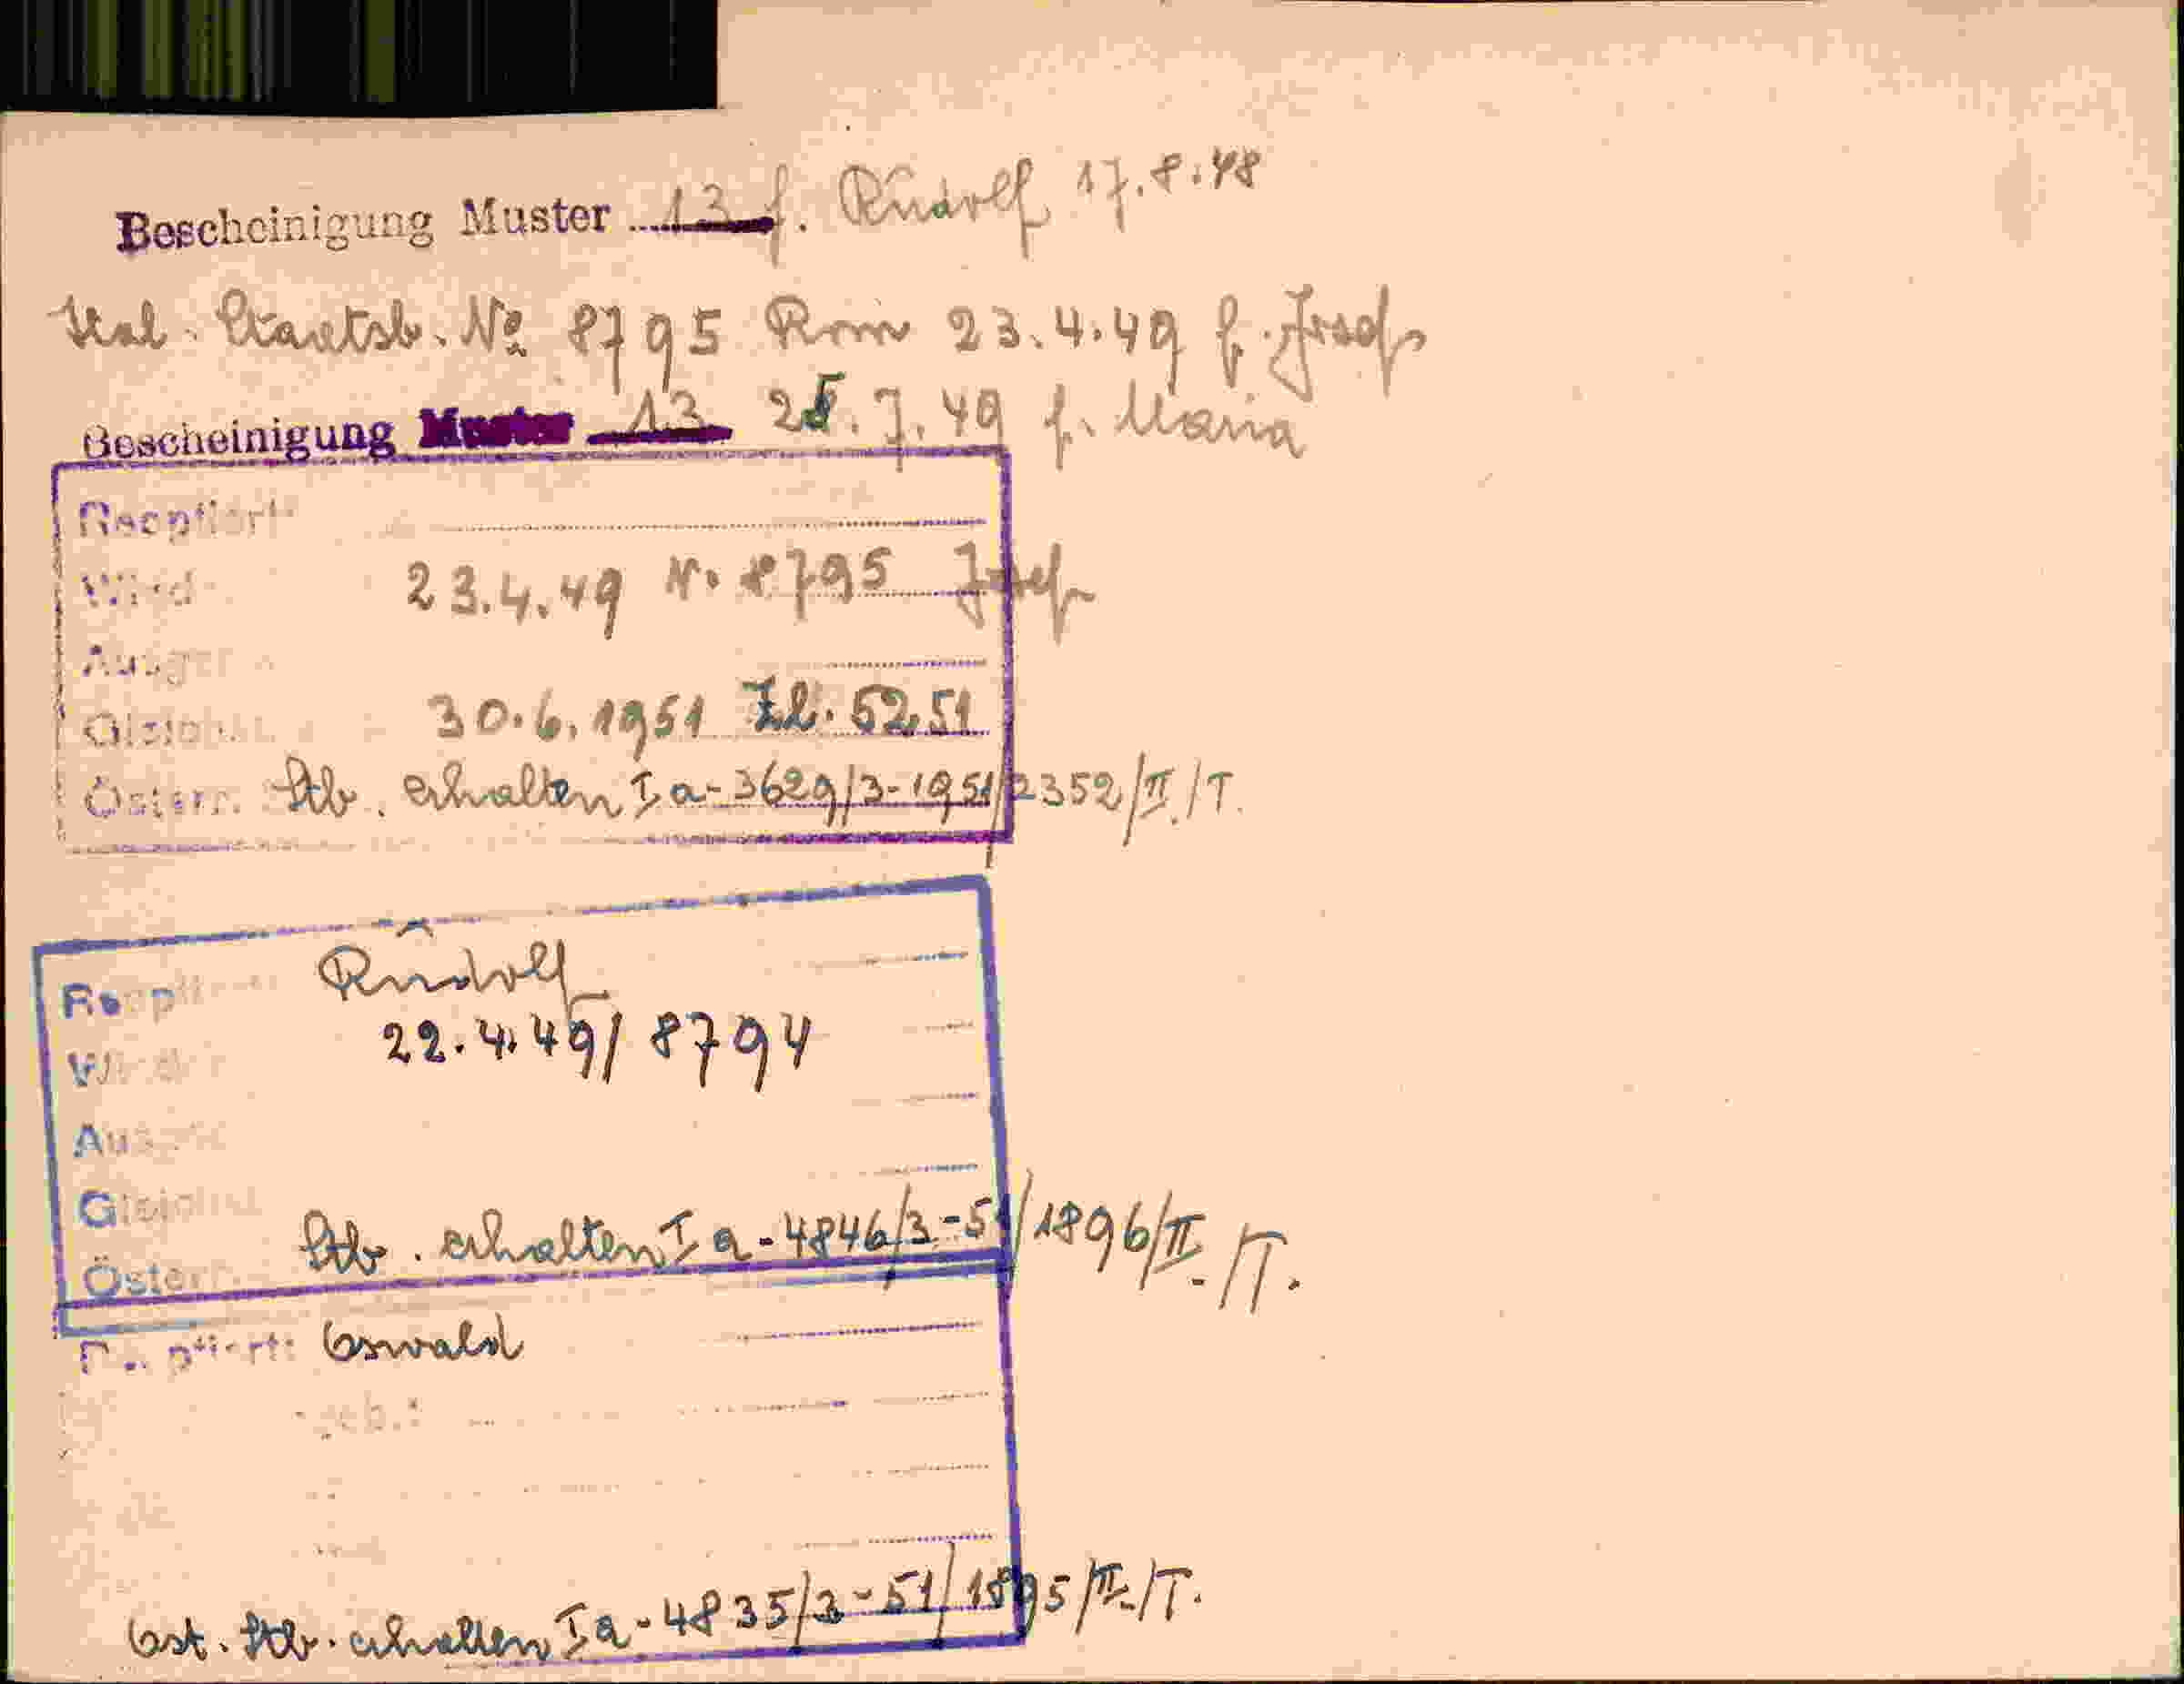 Bescheinigung Muster 13 f. Rudolf 17.8.48
Ital. Staatsb. № 8795 Rom 23.4.49 f. Josef
Bescheinigung Muster 13 25.7.49 f. Maria
Reoptiert:
Wird 23.4.49 Nr. 8795 Josef
Ausge
Gleich 30.6.1951 Zl. 5251
Österr. Stb. erhalten Ia-3629/3-1951/2352/II./T.
Reopti Rudolf
Wird 22.4.49/8794
Ausge
Gleich
Österr. Stb. erhalten Ia-4846/3-51/1896/II./T.
Reoptiert: Oswald
geb.:
Öst. Stb. erhalten Ia-4835/3-51/1895/II./T.